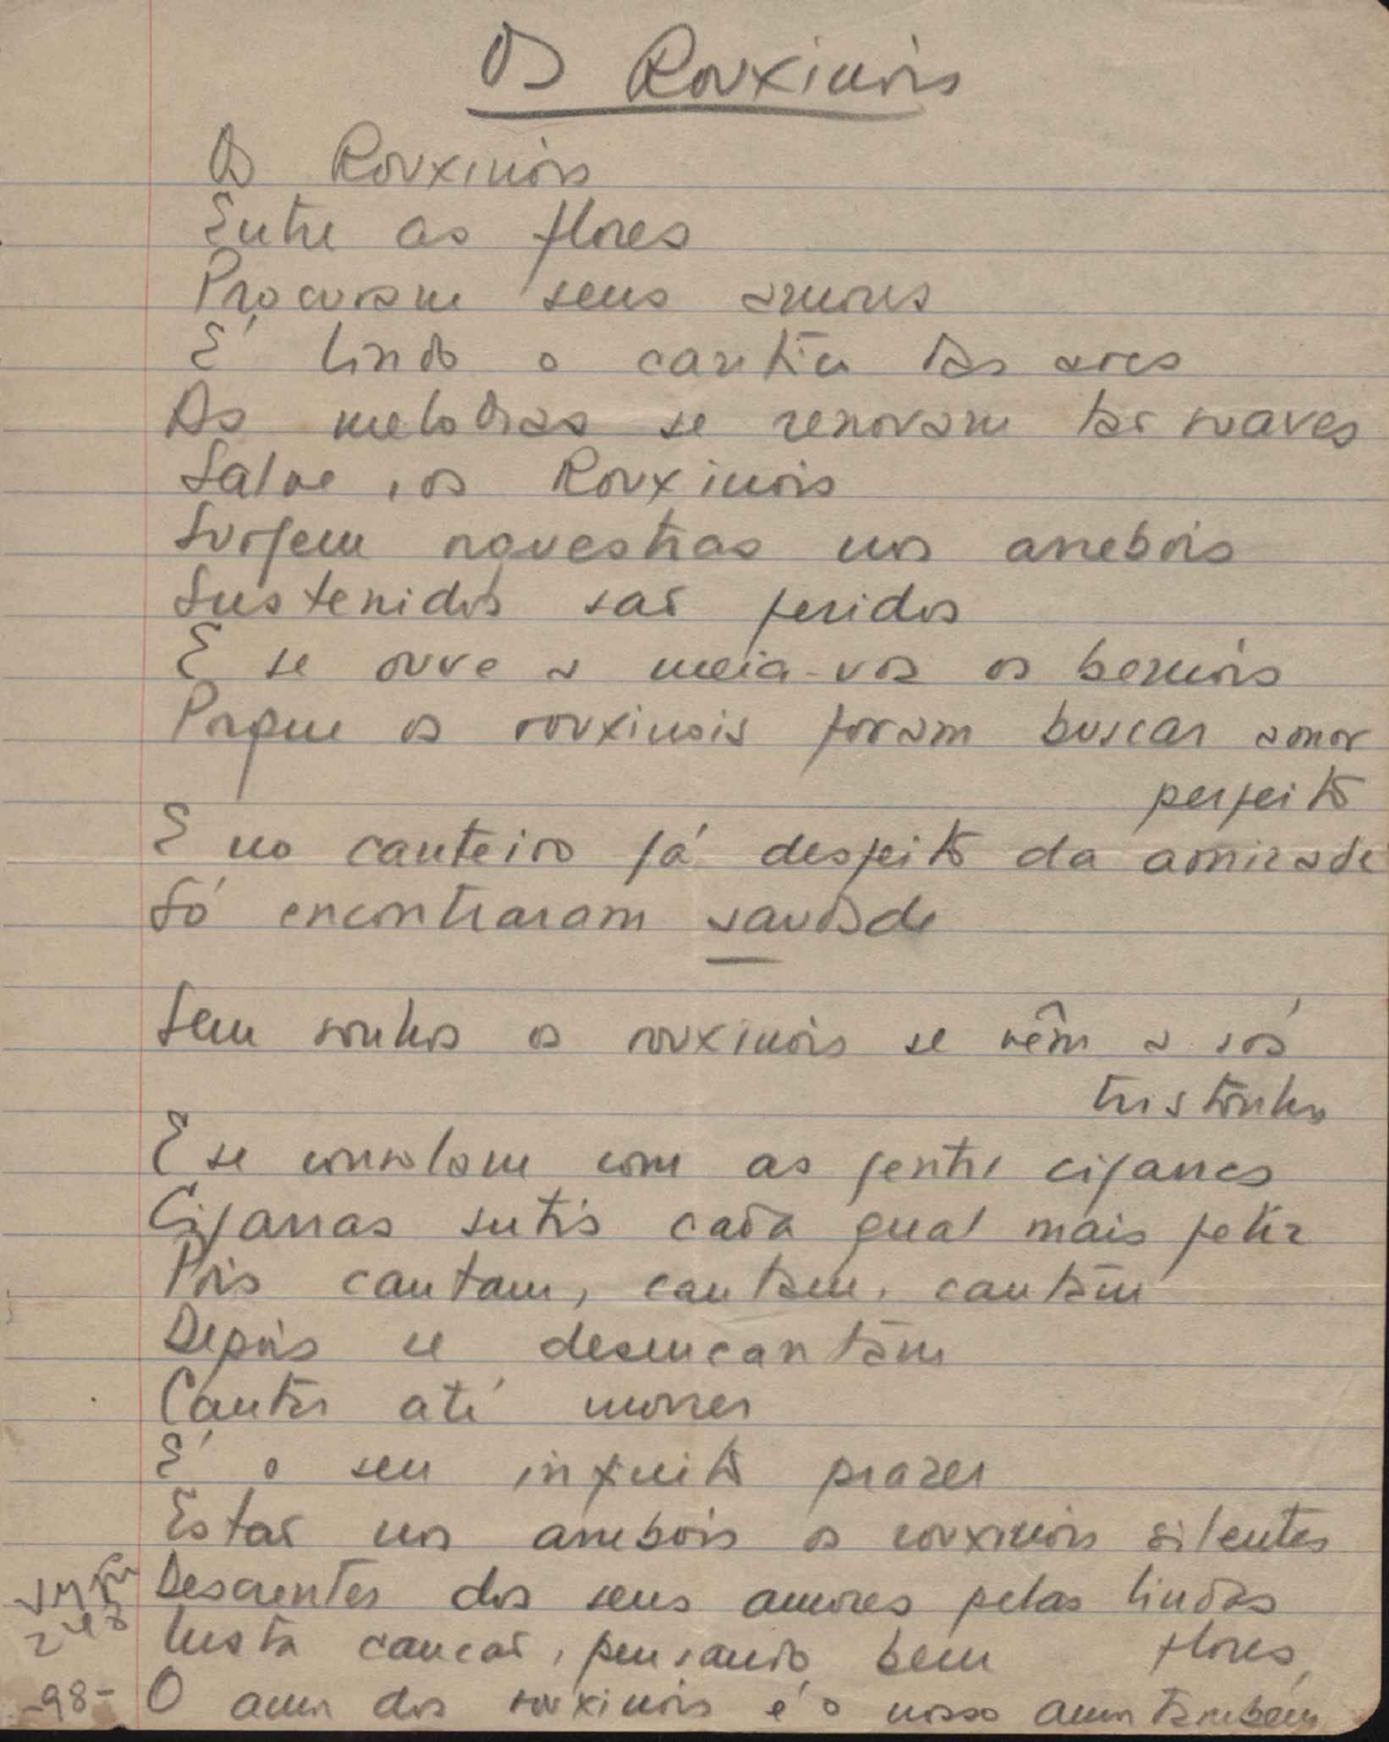 Os Rouxinóis
Os Rouxinóis
Entre as flores
Procuram seus amores
É lindo o cantar das aves
As melodias se renovam tão suaves
Salve, os Rouxinóis
Surgem orquestras nos arrebóis
Sustenidos são feridos
E se ouve a meia-voz os bemóis
Porque os rouxinóis foram buscar amor
perfeito
E no canteiro já desfeito da amizade
Só encontraram saudade
Sem sonhos os rouxinóis se vêm a sós
tristonhos
E se consolam com as gentis cigarras
Cigarras sutis cada qual mais feliz
Pois cantam, cantam, cantam
Depois se desencantam
Cantar até morrer
É o seu infinito prazer
Estão nos arrebóis os rouxinóis silentes
Descrentes dos seus amores pelas lindas
flores,
Nesta canção, pensando bem
O amor dos rouxinóis é o nosso amor também
-98-